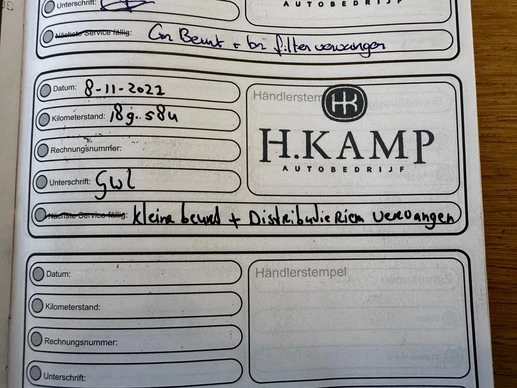 Unterschrift:
AUTOBEDRIJF
Nächste Service fällig: Gr Beurt + br filter vervangen
Datum: 8-11-2022
Händlerstem
HK
Kilometerstand: 189.584
H.KAMP
AUTOBEDRIJF
Rechnungsnummer:
Unterschrift:
Nächste Service fällig: kleine beurt + Distributie Riem vervangen
Datum:
Händlerstempel
Kilometerstand:
Rechnungsnummer:
Unterschrift: